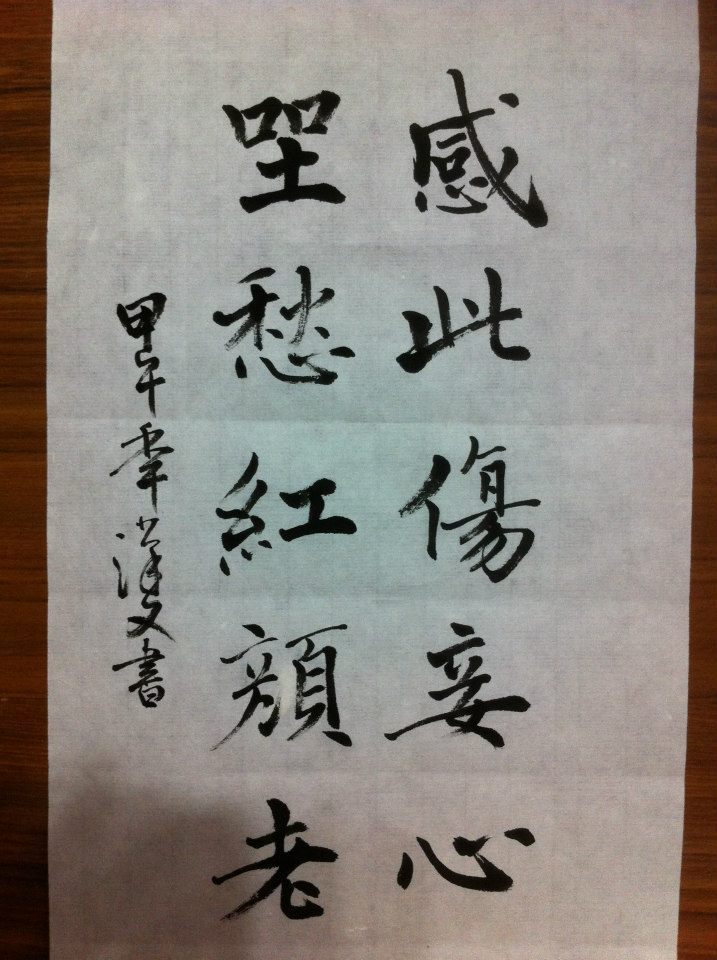 感此傷妾心
坐愁紅顔老
甲午季漢文書